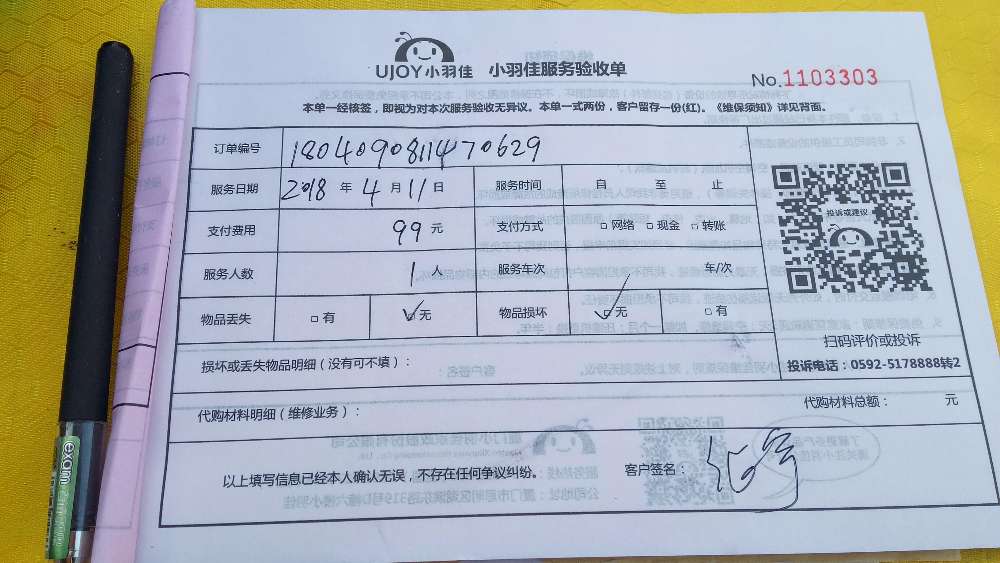 UJOY小羽佳 小羽佳服务验收单
No.1103303
本单一经核签，即视为对本次服务验收无异议。本单一式两份，客户留存一份(红)。《维保须知》详见背面。
订单编号 180409081147 0629
服务日期 2018 年 4 月 11 日 服务时间 自 至 止
支付费用 99 元 支付方式 □ 网络 □ 现金 □ 转账
服务人数 1 人 服务车次 车/次
物品丢失 □ 有 ☑ 无 物品损坏 ☑ 无 □ 有
投诉或建议
扫码评价或投诉
投诉电话：0592-5178888转2
损坏或丢失物品明细（没有可不填）：
代购材料明细（维修业务）： 代购材料总额： 元
以上填写信息已经本人确认无误，不存在任何争议纠纷。 客户签名：
exam